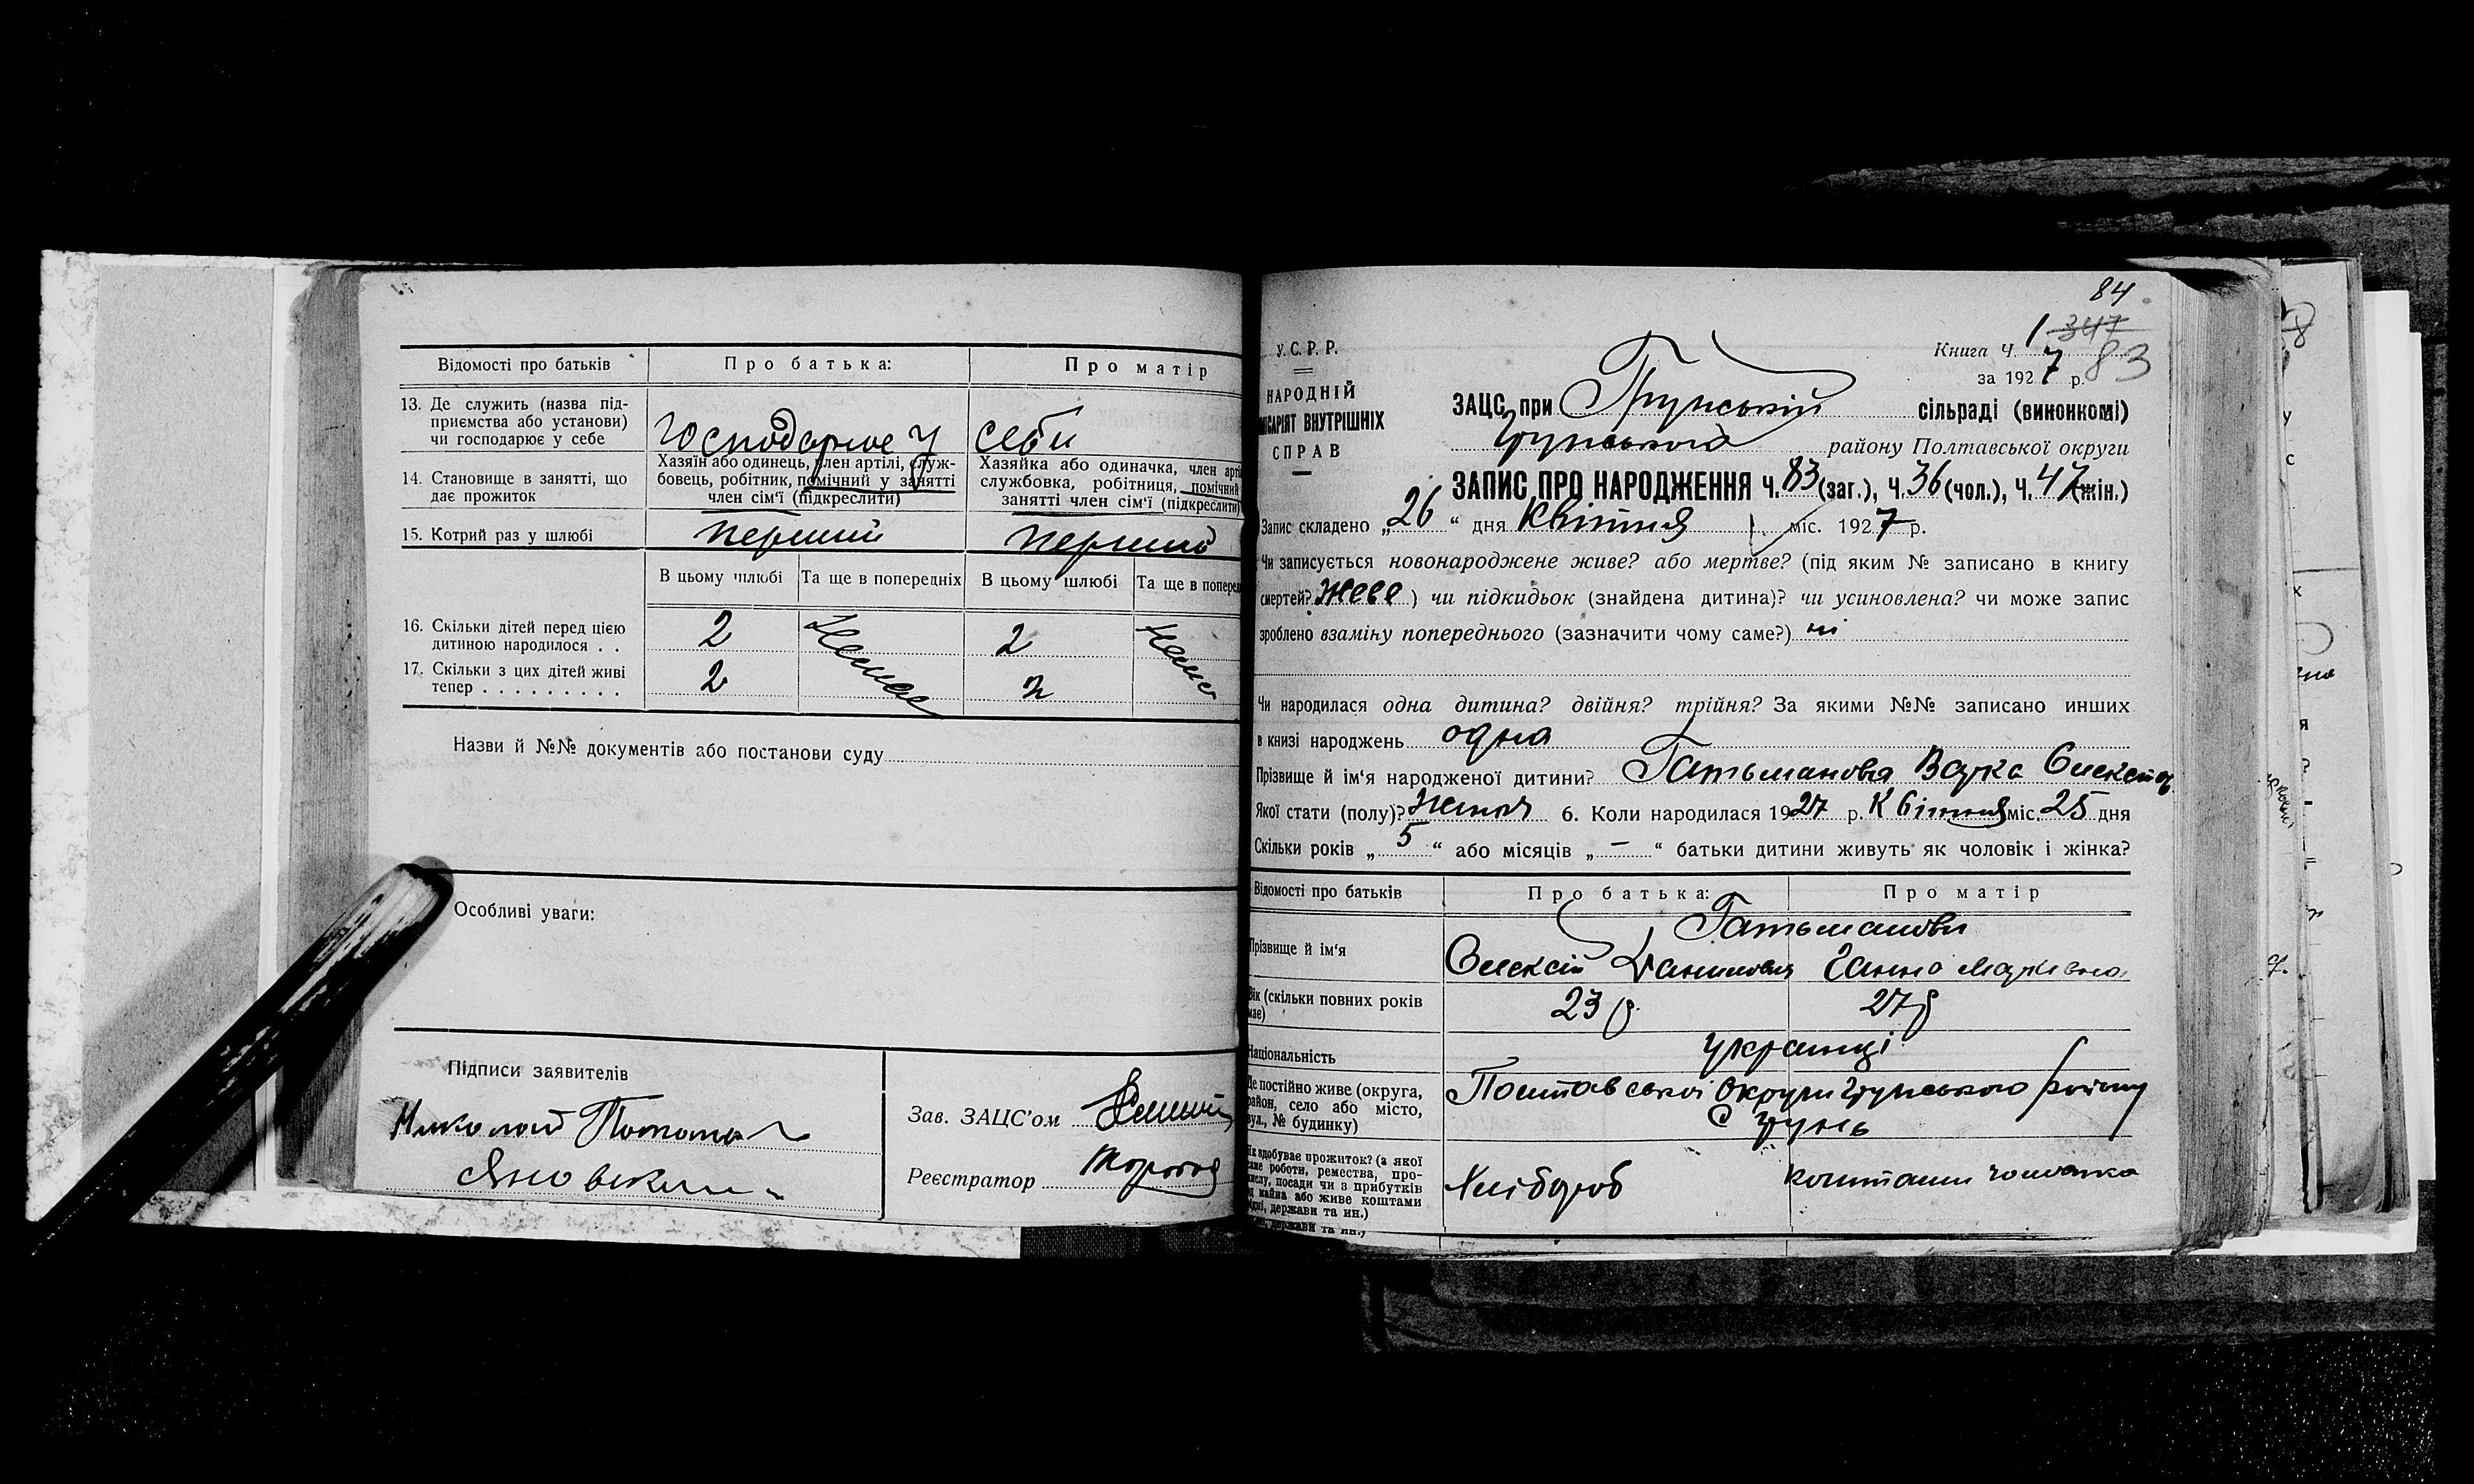 Відомості про батьків
Про батька:
Про матір
13. Де служить (назва під-
приємства або установи)
чи господарює у себе
Господарює у себи
14. Становище в занятті, що
дає прожиток
Хазяїн або одинець, член артілі, служ-
бовець, робітник, помічний у занятті
член сім'ї (підкреслити)
Хазяйка або одиначка, член арті
службовка, робітниця, помічний
занятті член сім'ї (підкреслити)
15. Котрий раз у шлюбі
перший
перший
В цьому шлюбі
Та ще в попередніх
В цьому шлюбі
Та ще в поперед
16. Скільки дітей перед цією
дитиною народилося . .
2
Немає
2
17. Скільки з цих дітей живі
тепер . . . . . . . . .
2
2
Назви й №№ документів або постанови суду
Особливі уваги:
Підписи заявителів
Николай
Зав. ЗАЦС'ом
Реєстратор
84
У.С.Р.Р.
НАРОДНІЙ
ІСАРІЯТ ВНУТРІШНІХ
СПРАВ
Книга Ч. 1 347
за 1927 р. 83
ЗАЦС при Грунській сільраді (виконкомі)
Грунського району Полтавської округи
ЗАПИС ПРО НАРОДЖЕННЯ Ч. 83 (заг.), Ч. 36 (чол.), Ч. 47 (жін.)
Запис складено „26“ дня Квітня міс. 1927 р.
Чи записується новонароджене живе? або мертве? (під яким № записано в книгу
смертей? живе ) чи підкидьок (знайдена дитина)? чи усиновлена? чи може запис
зроблено взаміну попереднього (зазначити чому саме?) ні
Чи народилася одна дитина? двійня? трійня? За якими №№ записано инших
в книзі народжень одна
Прізвище й ім'я народженої дитини? Гатьманова
Якої статі (полу)? 6. Коли народилася 1927 р. Квітня міс. 25 дня
Скільки років „5“ або місяців „–“ батьки дитини живуть як чоловік і жінка?
Відомості про батьків
Про батька:
Про матір
Гатьманови
Прізвище й ім'я
Олексій Данилович
Ганна Марківна
Вік (скільки повних років
має)
23 р.
27 р
Національність
українці
Де постійно живе (округа,
район, село або місто,
вул., № будинку)
Полтавської Округи Грунського району
С Грунь
Як здобуває прожиток? (з якої
саме роботи, ремества, про-
мислу, посади чи з прибутків
од майна або живе коштами
рідні, держави та ин.)
Хлібороб
коштами чоловіка